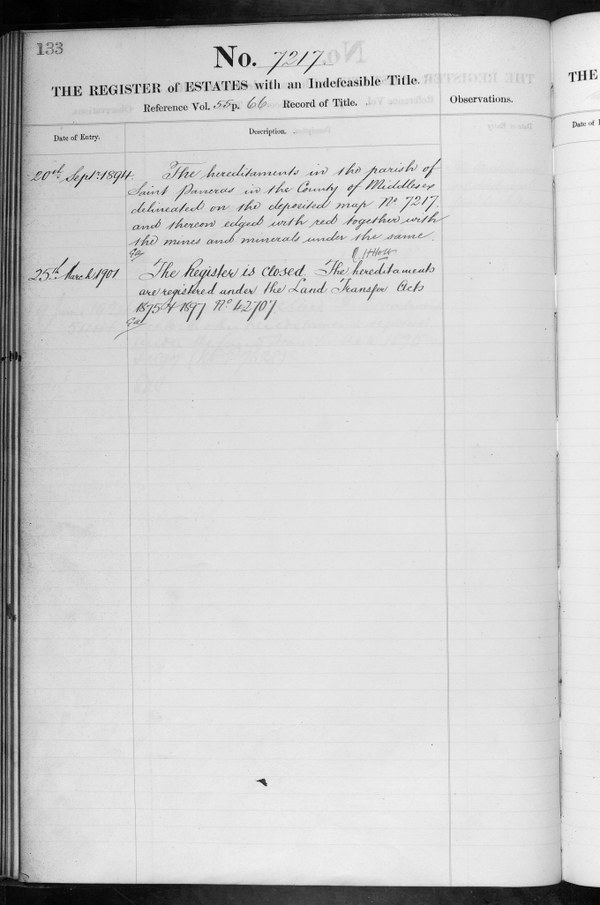 133
No. 7217.
THE REGISTER of ESTATES with an Indefeasible Title.
Reference Vol. 55 p. 66 Record of Title.
Observations.
Date of Entry.
Description.
20th Septr. 1894.
The hereditaments in the parish of
Saint Pancras in the County of Middlesex
delineated on the deposited map No 7217
and thereon edged with red together with
the mines and minerals under the same.
25th March 1901
The Register is closed The hereditaments
are registered under the Land Transfer Acts
1875 & 1897 No 42707
THE
Date of E